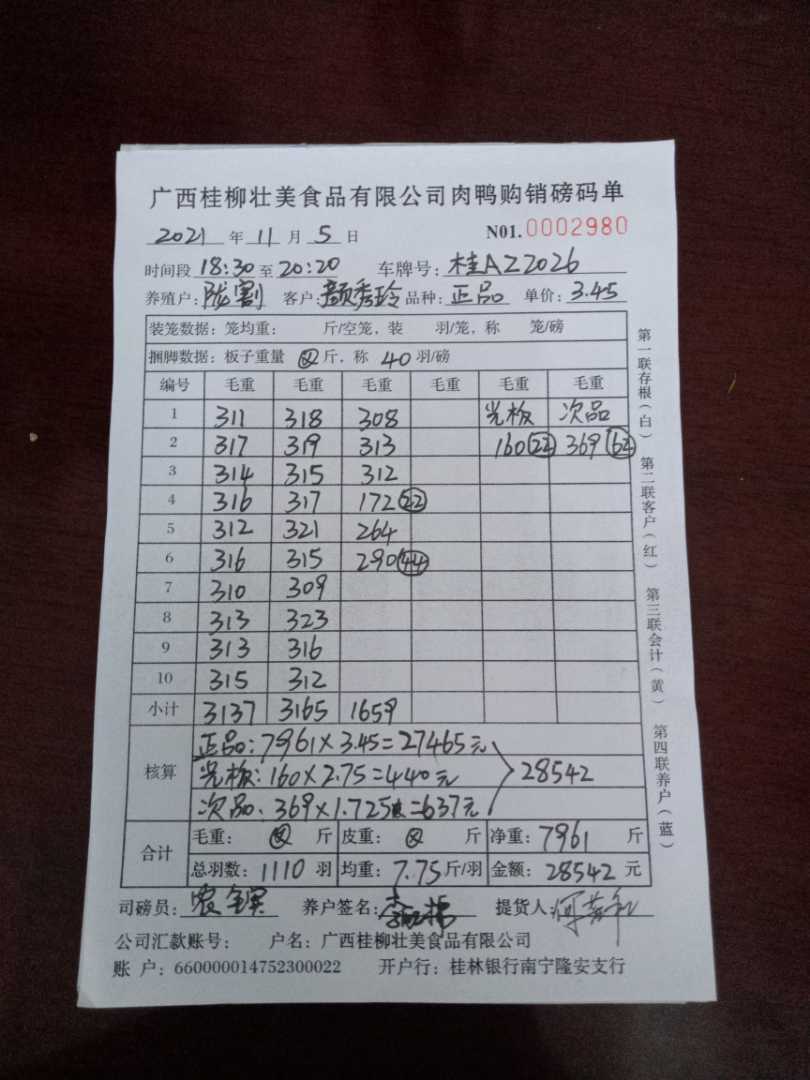 广西桂柳壮美食品有限公司肉鸭购销磅码单
2021 年 11 月 5 日 N01.0002980
时间段 18:30 至 20:20 车牌号: 桂AZ2026
养殖户: 陇割 客户: 颜秀玲 品种: 正品 单价: 3.45
装笼数据: 笼均重: 斤/空笼, 装 羽/笼, 称 笼/磅
捆脚数据: 板子重量 斤, 称 40 羽/磅
编号 毛重 毛重 毛重 毛重 毛重 毛重
1 311 318 308 光板 次品
2 317 319 313 160 (22) 369 (62)
3 314 315 312
4 316 317 172 (22)
5 312 321 264
6 316 315 290 (44)
7 310 309
8 313 323
9 313 316
10 315 312
小计 3137 3165 1659
核算
正品: 7961×3.45=27465元
光板: 160×2.75=440元
次品: 369×1.725=637元
28542
合计
毛重: 斤 皮重: 斤 净重: 7961 斤
总羽数: 1110 羽 均重: 7.75 斤/羽 金额: 28542 元
司磅员: 养户签名: 提货人:
公司汇款账号: 户名: 广西桂柳壮美食品有限公司
账 户: 660000014752300022 开户行: 桂林银行南宁隆安支行
第一联存根(白) 第二联客户(红) 第三联会计(黄) 第四联养户(蓝)